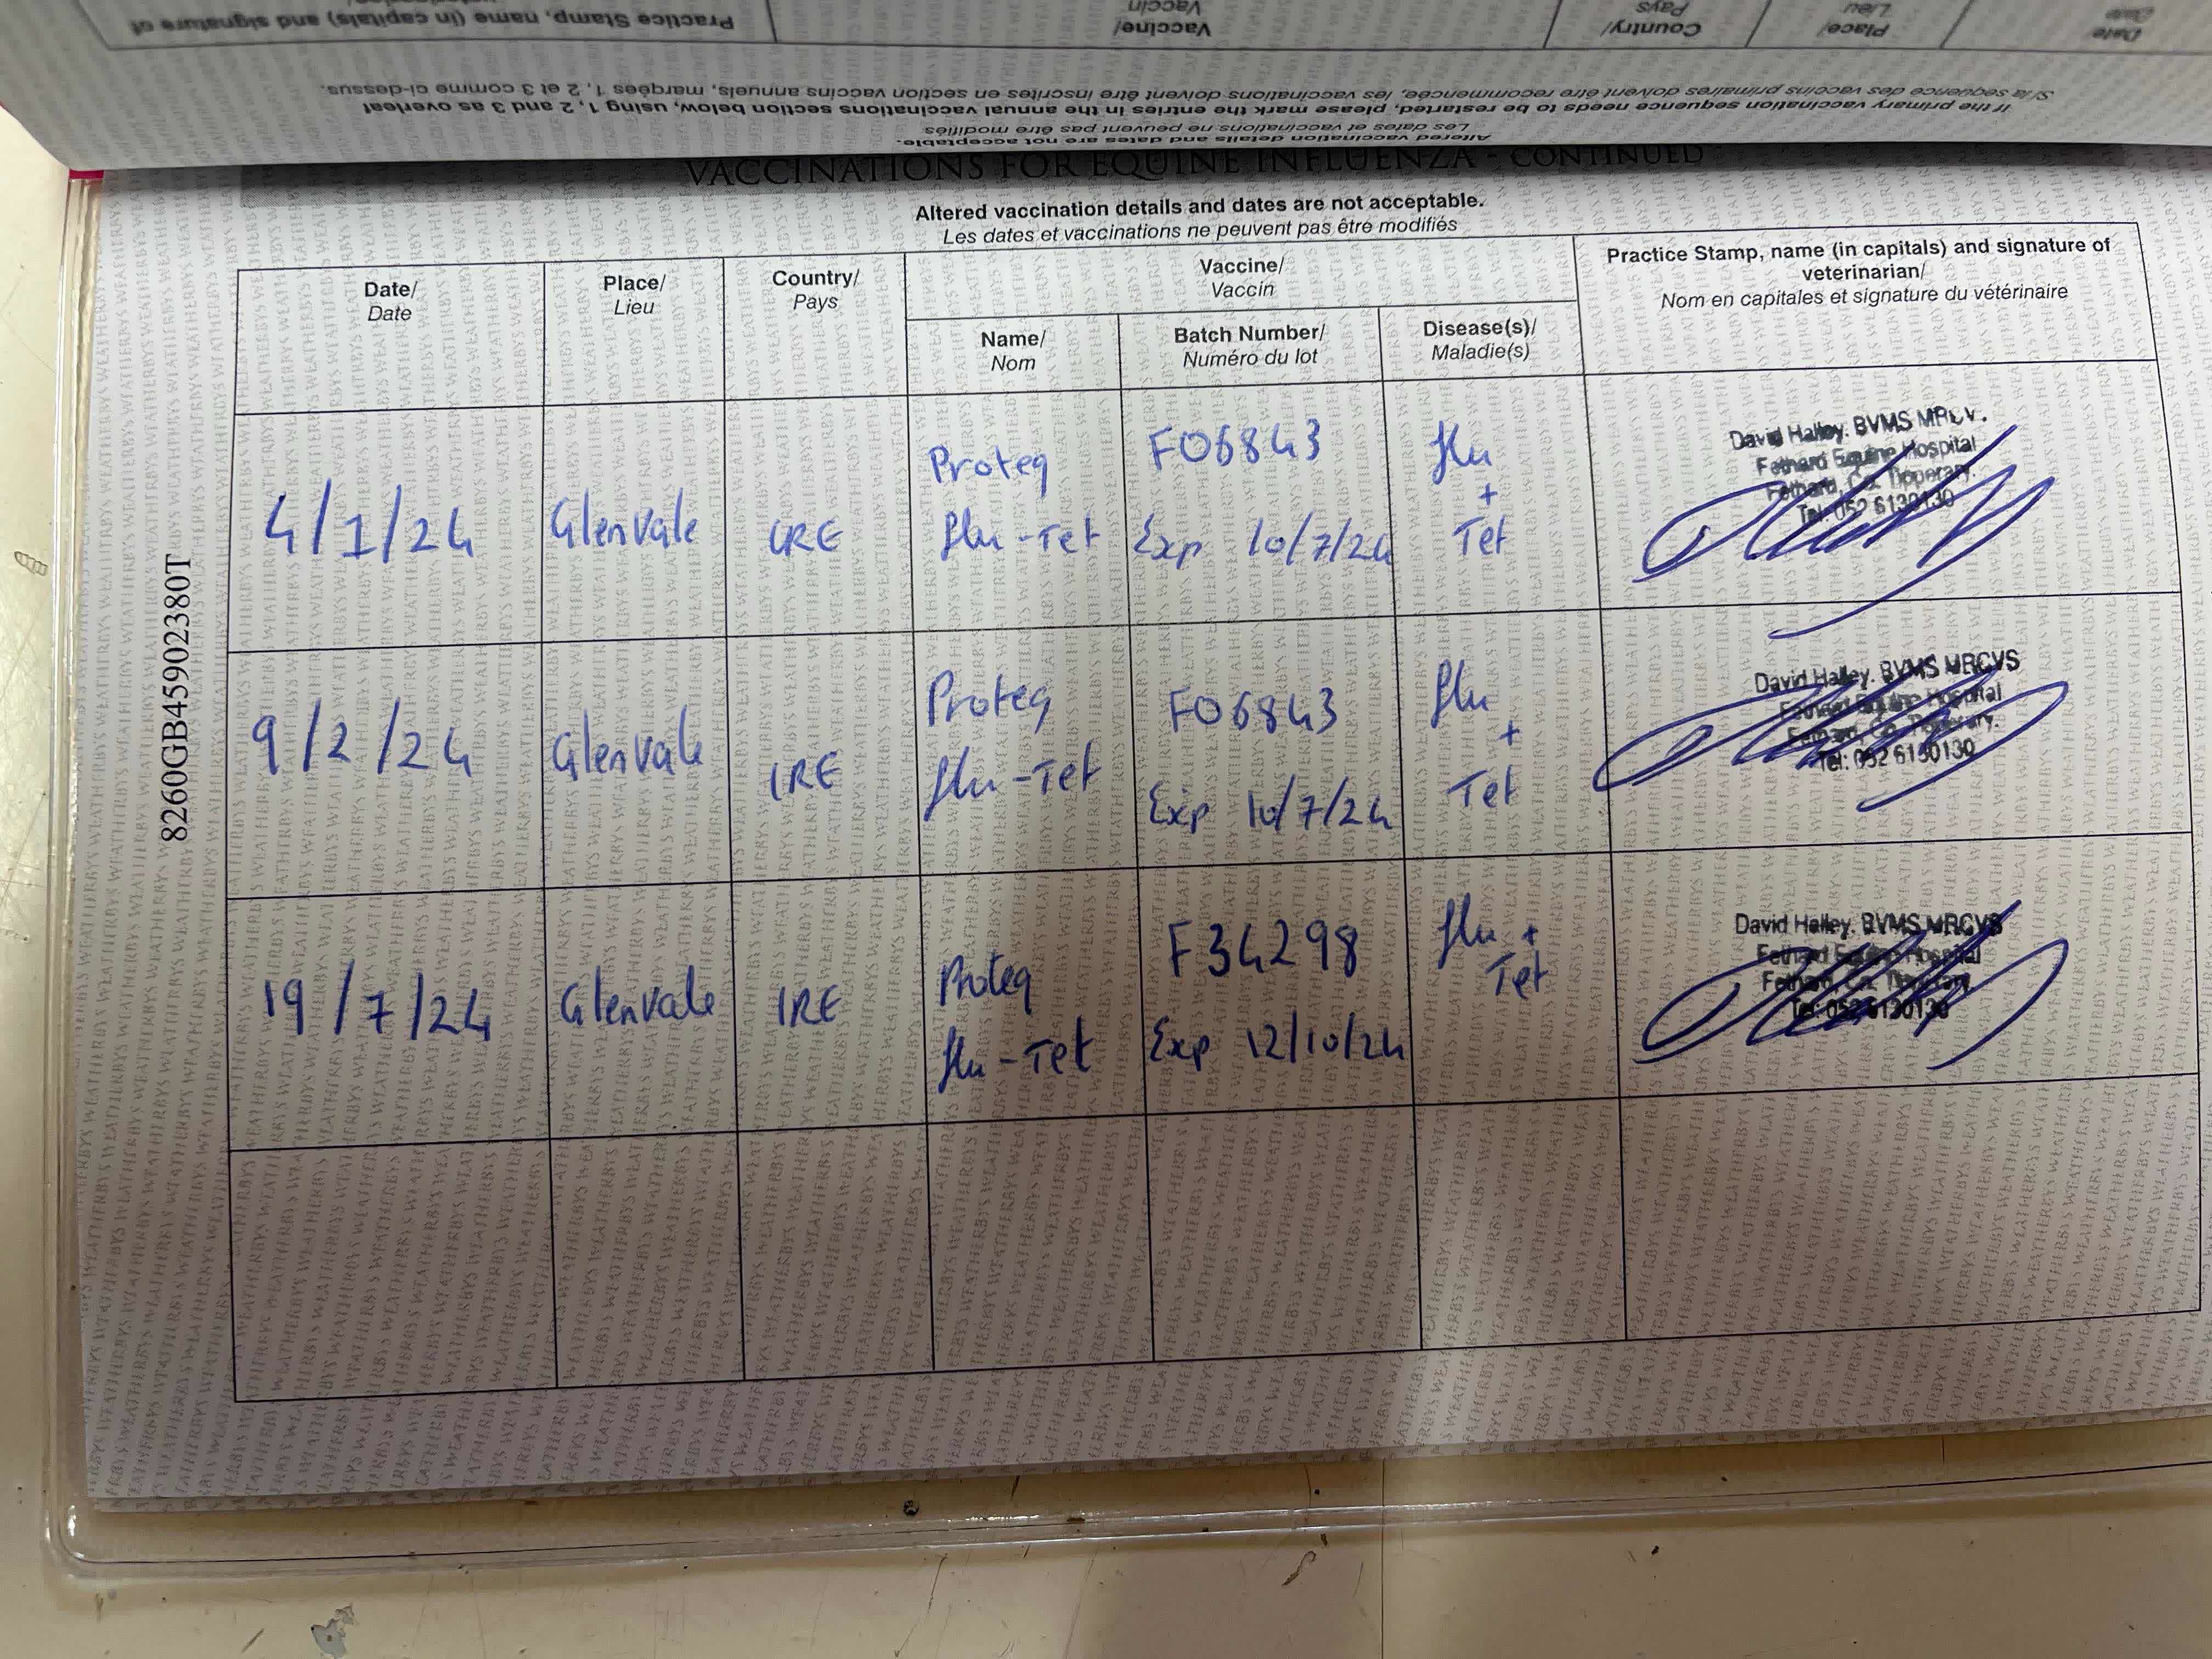 Practice Stamp, name (in capitals) and signature of
Vaccine/
Vaccin
Country/
Pays
Place/
Lieu
Date/
Date
Si la séquence des vaccins primaires doivent être recommencée, les vaccinations doivent être inscrites en section vaccins annuels, marqées 1, 2 et 3 comme ci-dessus.
If the primary vaccination sequence needs to be restarted, please mark the entries in the annual vaccinations section below, using 1, 2 and 3 as overleaf
Les dates et vaccinations ne peuvent pas être modifiés
Altered vaccination details and dates are not acceptable.
VACCINATIONS FOR EQUINE INFLUENZA - CONTINUED
Altered vaccination details and dates are not acceptable.
Les dates et vaccinations ne peuvent pas être modifiés
Date/
Date
Place/
Lieu
Country/
Pays
Vaccine/
Vaccin
Name/
Nom
Batch Number/
Numéro du lot
Disease(s)/
Maladie(s)
Practice Stamp, name (in capitals) and signature of
veterinarian/
Nom en capitales et signature du vétérinaire
4/1/24
Glenvale
IRE
Proteq
flu-Tet
F06843
Exp 10/7/24
flu
+
Tet
David Halley. BVMS
Fethard Equine Hospital
Fethard, Co. Tipperary.
Tel: 052 6130130
9/2/24
Glenvale
IRE
Proteq
flu-Tet
F06843
Exp 10/7/24
flu
+
Tet
David Halley. BVMS MRCVS
Fethard Equine Hospital
Fethard, Co. Tipperary.
Tel: 052 6130130
19/7/24
Glenvale
IRE
Proteq
flu-Tet
F34298
Exp 12/10/24
flu +
Tet
David Halley. BVMS MRCVS
Fethard Equine Hospital
Fethard, Co. Tipperary.
Tel: 052 6130130
8260GB45902380T